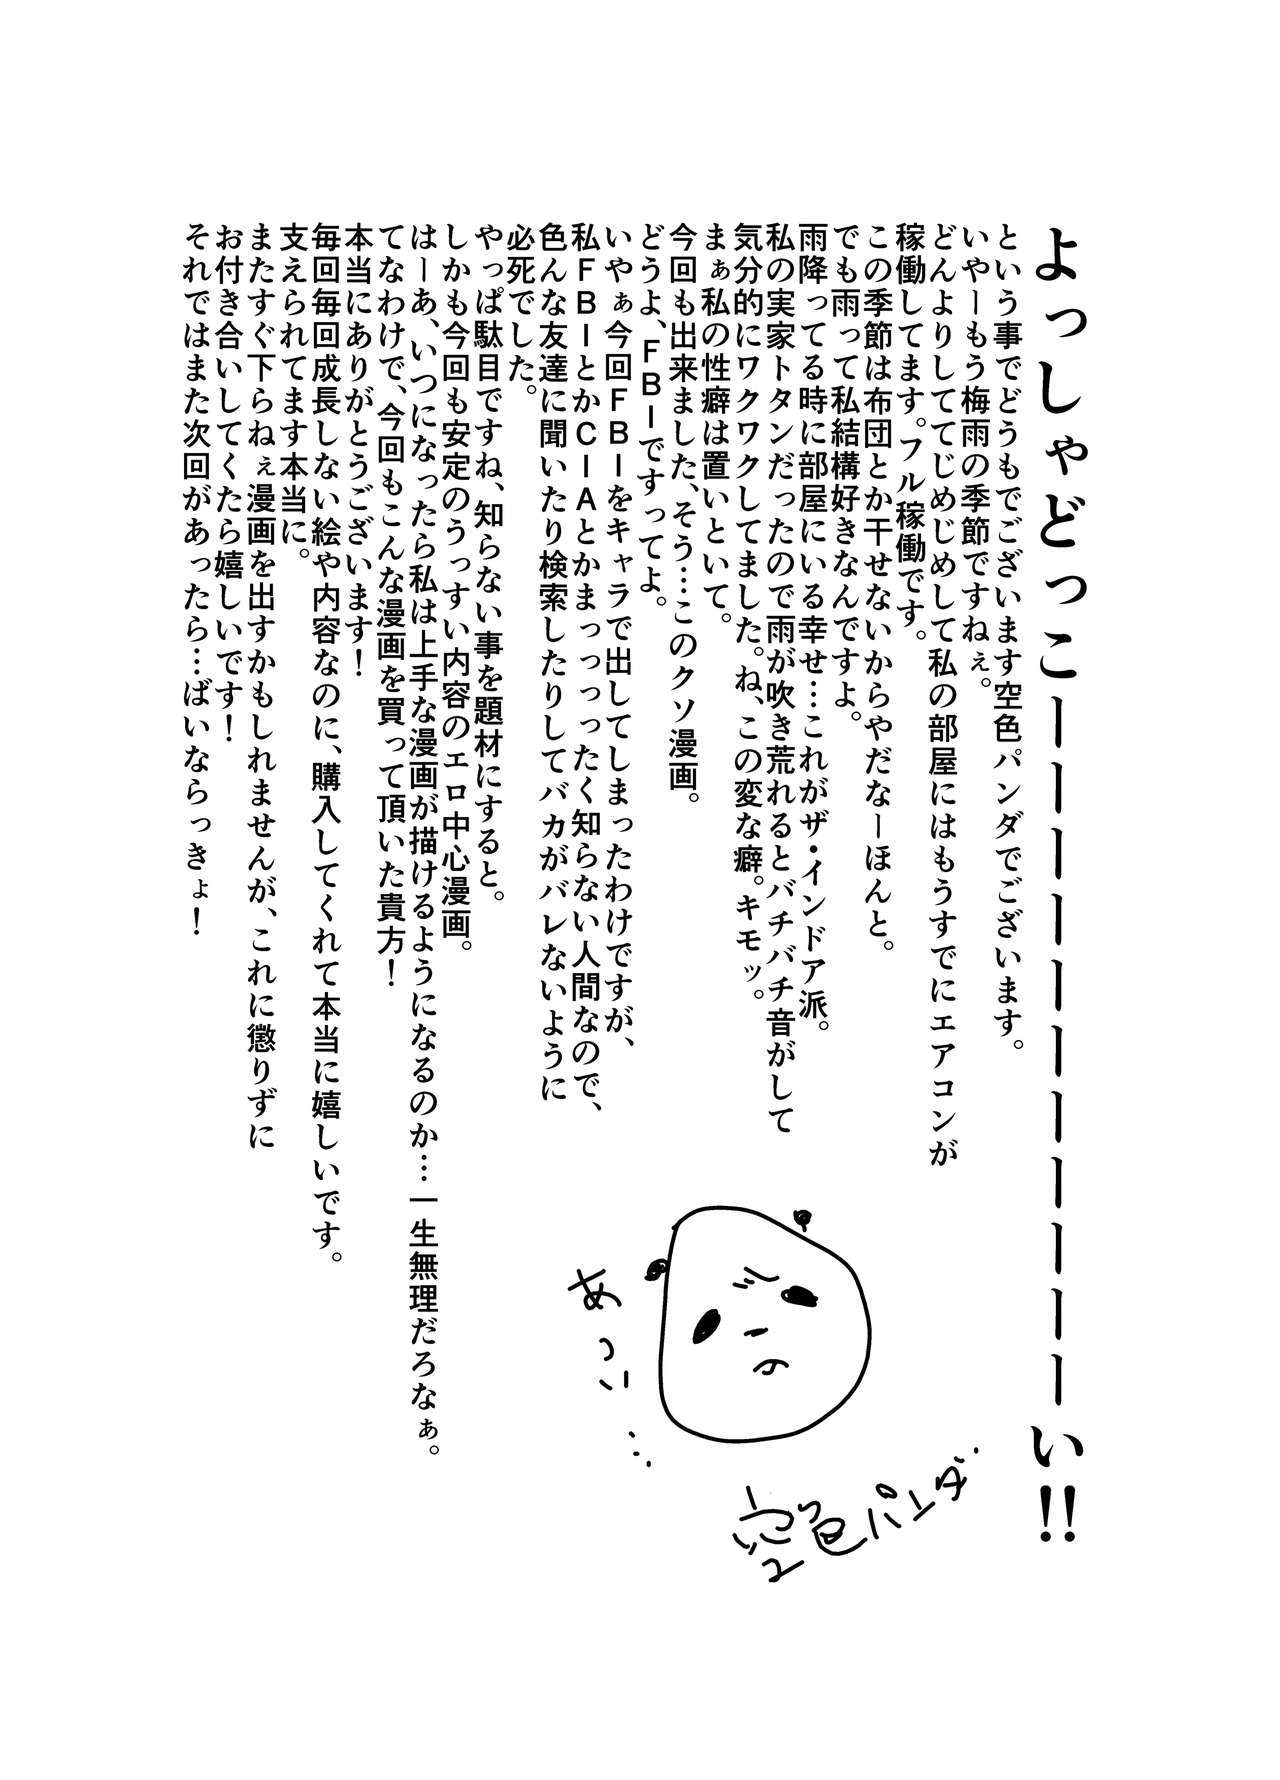 よっしゃどっこーーーーーーーーーーーい!!
という事でどうもでございます空色パンダでございます。
いやーもう梅雨の季節ですねぇ。
どんよりしててじめじめして私の部屋にはもうすでにエアコンが
稼働してます。フル稼働です。
この季節は布団とか干せないからやだなーほんと。
でも雨って私結構好きなんですよ。
雨降ってる時に部屋にいる幸せ…これがザ・インドア派。
私の実家トタンだったので雨が吹き荒れるとバチバチ音がして
気分的にワクワクしてました。ね、この変な癖。キモッ。
まぁ私の性癖は置いといて。
今回も出来ました、そう…このクソ漫画。
どうよ、FBIですってよ。
いやぁ今回FBIをキャラで出してしまったわけですが、
私FBIとかCIAとかまっっっったく知らない人間なので、
色んな友達に聞いたり検索したりしてバカがバレないように
必死でした。
やっぱ駄目ですね、知らない事を題材にすると。
しかも今回も安定のうっすい内容のエロ中心漫画。
はーあ、いつになったら私は上手な漫画が描けるようになるのか…一生無理だろなぁ。
てなわけで、今回もこんな漫画を買って頂いた貴方！
本当にありがとうございます！
毎回毎回成長しない絵や内容なのに、購入してくれて本当に嬉しいです。
支えられてます本当に。
またすぐ下らねぇ漫画を出すかもしれませんが、これに懲りずに
お付き合いしてくたら嬉しいです！
それではまた次回があったら…ばいならっきょ！
あつい…
空色パンダ